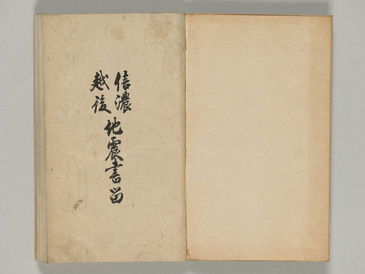 信濃
越後
地震書留